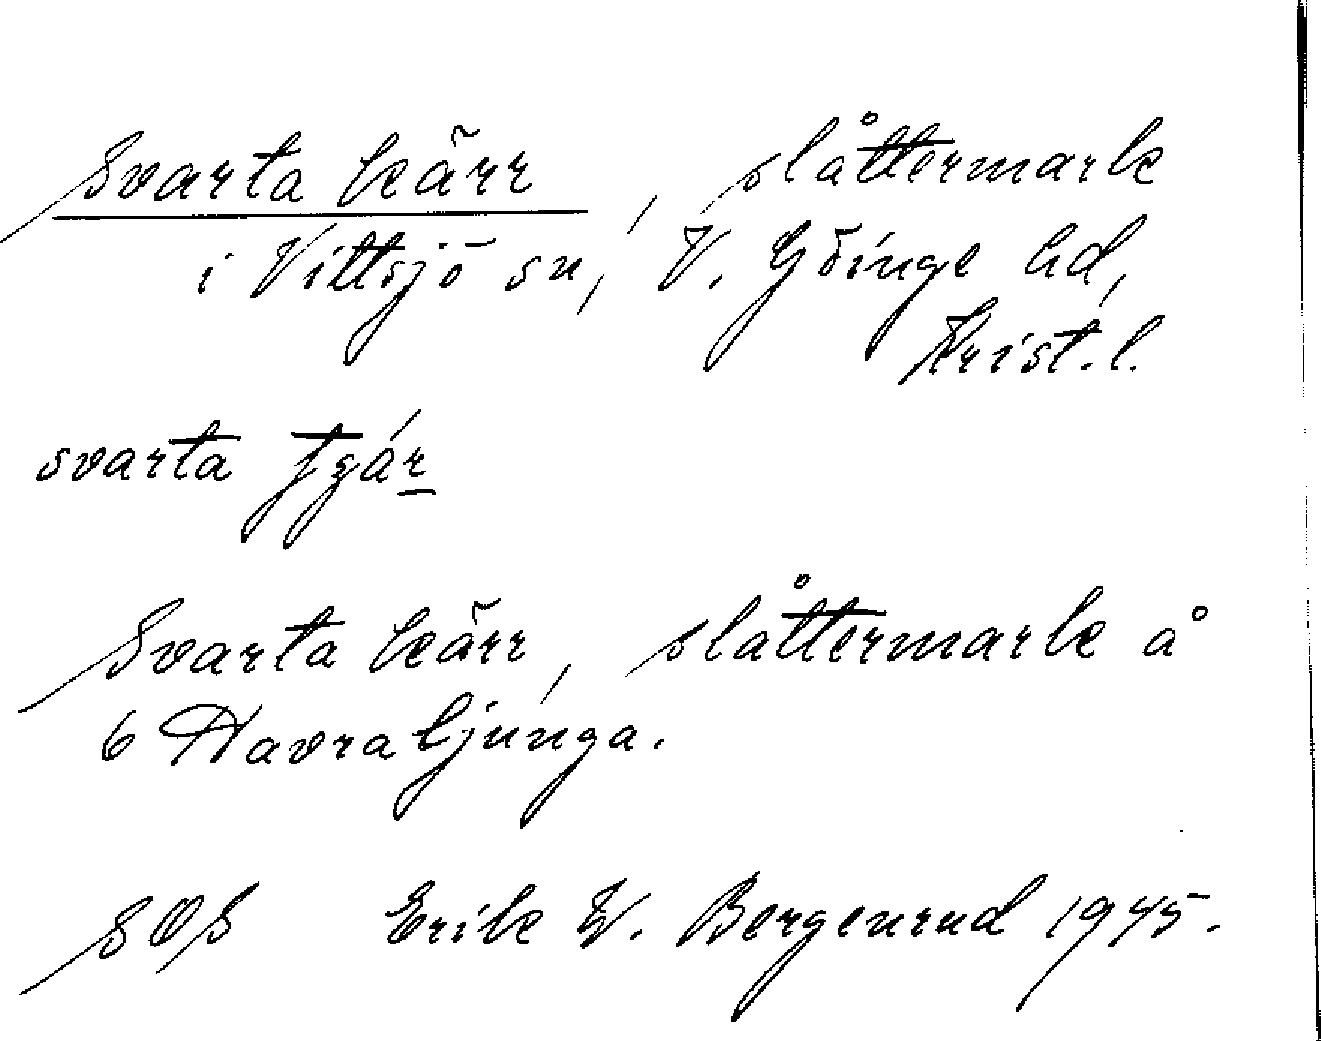 Svarta kärr, slåttermark
i Vittsjö sn, V. Göinge hd,
Krist.l.
svarta
Svarta kärr, slåttermark å
6 Havraljunga.
SOS Erik W. Bergenrud 1945.